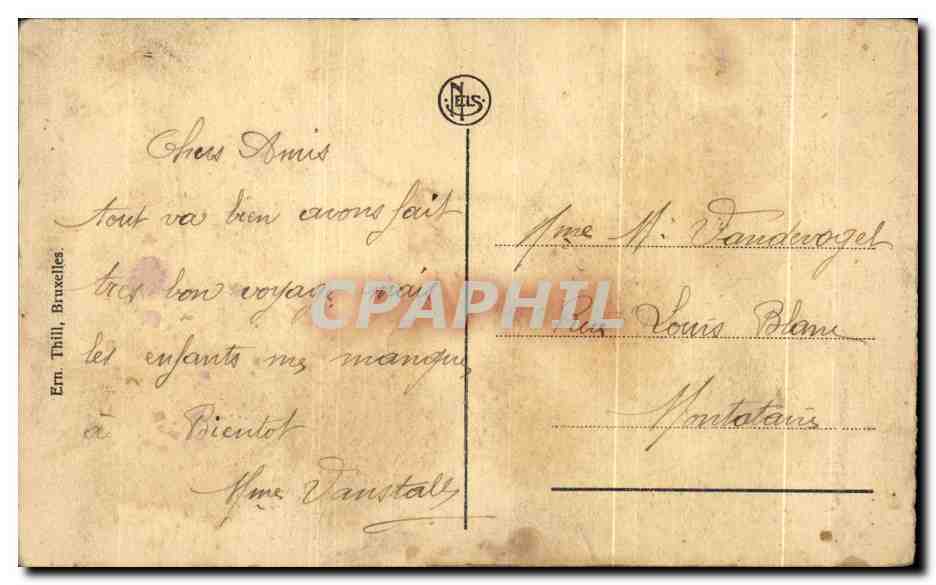 NELS
Chers Amis
tout va bien avons fait
tres bon voyage mais
les enfants me manque
à Bientot
Mme Vanstals
Mme M. Vandevogel
Rue Louis Blanc
Montataire
Ern. Thill, Bruxelles.
CPAPHIL